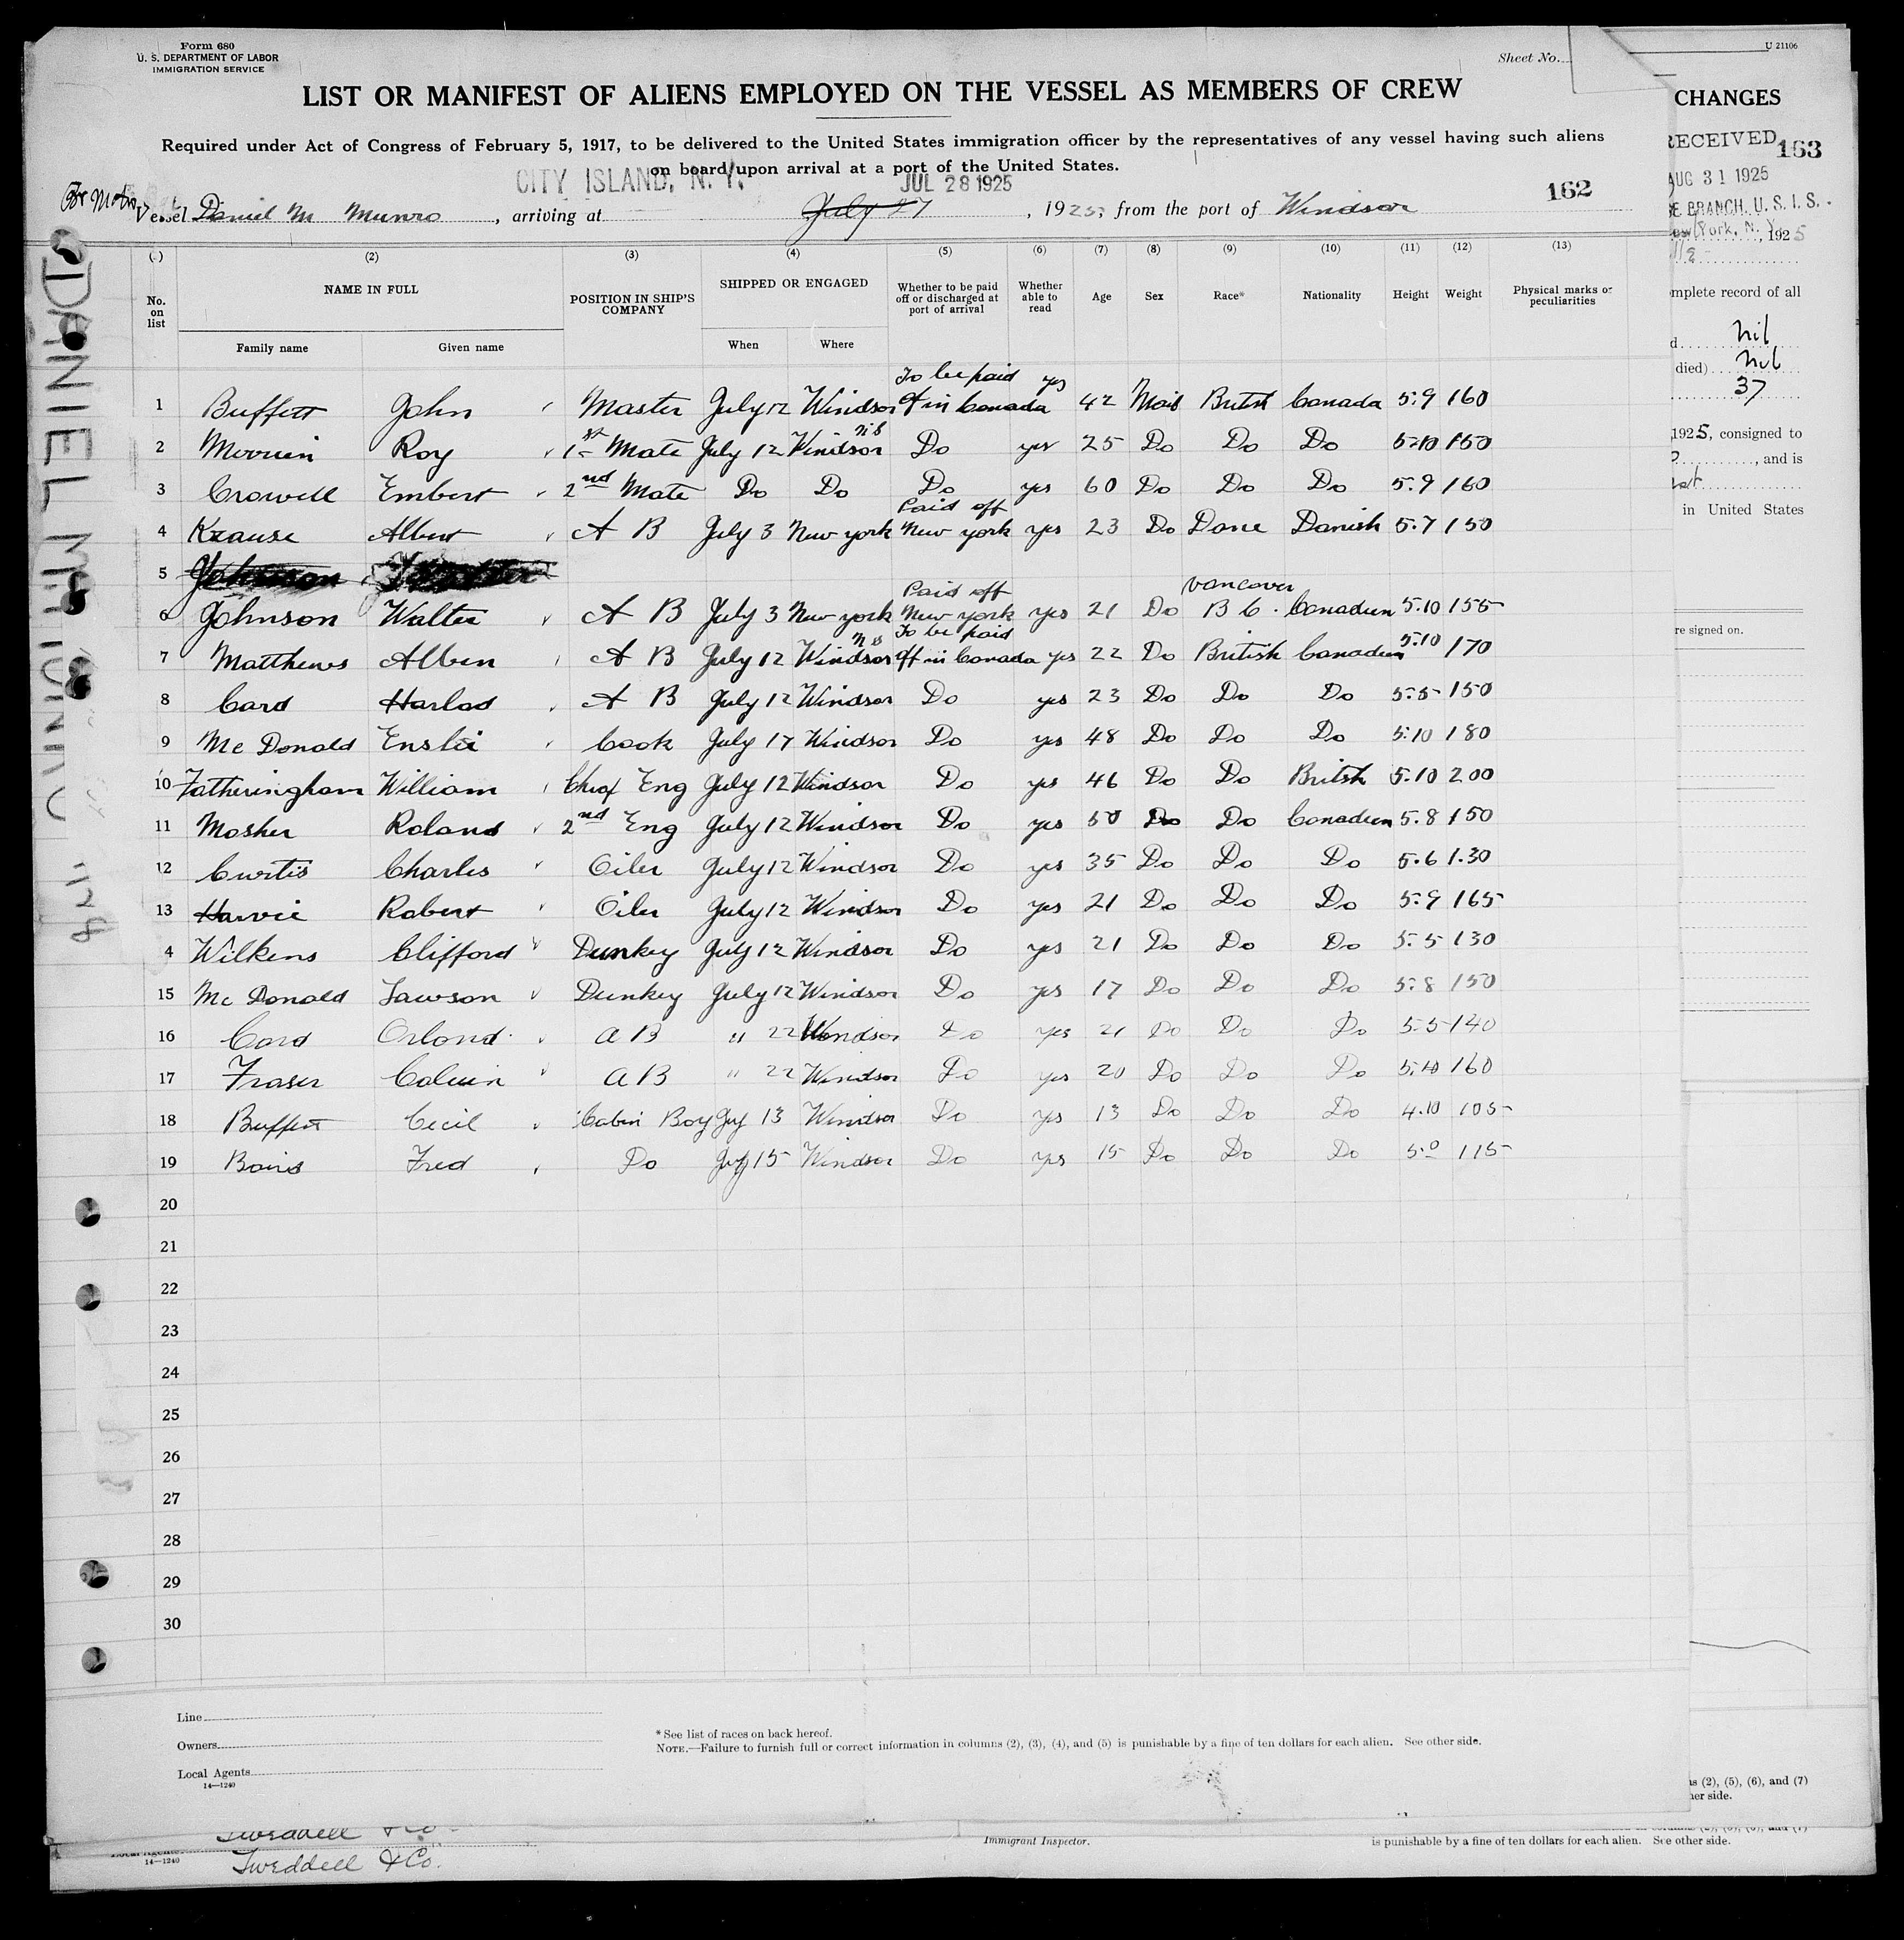 Form 680
U. S. DEPARTMENT OF LABOR
IMMIGRATION SERVICE
Sheet No.
U 21106
LIST OR MANIFEST OF ALIENS EMPLOYED ON THE VESSEL AS MEMBERS OF CREW
CHANGES
Required under Act of Congress of February 5, 1917, to be delivered to the United States immigration officer by the representatives of any vessel having such aliens
on board upon arrival at a port of the United States.
RECEIVED 163
AUG 31 1925
CITY ISLAND, N. Y. JUL 28 1925 162
BRANCH, U. S. I. S.
Vessel Daniel M Munro, arriving at July 27, 1925, from the port of Windsor
York, N. Y. , 1925
(2) (3) (4) (5) (6) (7) (8) (9) (10) (11) (12) (13)
No. on list
NAME IN FULL
Family name Given name
POSITION IN SHIP'S COMPANY
SHIPPED OR ENGAGED
When Where
Whether to be paid off or discharged at port of arrival
Whether able to read
Age Sex Race* Nationality Height Weight
Physical marks or peculiarities
mplete record of all
nil
died) nil
37
1925, consigned to
, and is
in United States
re signed on.
To be paid yes
1 Buffett John Master July 12 Windsor off in Canada 42 Male British Canada 5.9 160
2 Roy 1st Mate July 12 Windsor NS Do yes 25 Do Do Do 5.10 150
3 Crowell Embert 2nd Mate Do Do Do yes 60 Do Do Do 5.9 160
Paid off
4 Krause Albert A B July 3 New york New york yes 23 Do Dane Danish 5.7 150
5 Johnson
Paid off Vancover
6 Johnson Walter A B July 3 New york New york yes 21 Do B C. Canadian 5.10 155
To be paid
7 Matthews Alben A B July 12 Windsor NS off in Canada yes 22 Do British Canadian 5.10 170
8 Card Harlad A B July 12 Windsor Do yes 23 Do Do Do 5.5 150
9 Mc Donald Enslie Cook July 17 Windsor Do yes 48 Do Do Do 5.10 180
10 Fatheringham William Chief Eng July 12 Windsor Do yes 46 Do Do British 5.10 200
11 Mosher Roland 2nd Eng July 12 Windsor Do yes 50 Do Do Canadian 5.8 150
12 Curtis Charles Oiler July 12 Windsor Do yes 35 Do Do Do 5.6 1.30
13 Harvie Robert Oiler July 12 Windsor Do yes 21 Do Do Do 5.9 165
4 Wilkens Clifford Dunkey July 12 Windsor Do yes 21 Do Do Do 5.5 130
15 Mc Donald Lawson Dunkey July 12 Windsor Do yes 17 Do Do Do 5.8 150
16 Card Orlond A B " 22 Windsor Do yes 21 Do Do Do 5.5 140
17 Fraser Calvin A B " 22 Windsor Do yes 20 Do Do Do 5.10 160
18 Buffett Cecil Cabin Boy July 13 Windsor Do yes 13 Do Do Do 4.10 105
19 Fred Do July 15 Windsor Do yes 15 Do Do Do 5.0 115
20
21
22
23
24
25
26
27
28
29
30
DANIEL M. MUNRO
Line
Owners
Local Agents
14—1240
* See list of races on back hereof.
NOTE.—Failure to furnish full or correct information in columns (2), (3), (4), and (5) is punishable by a fine of ten dollars for each alien. See other side.
(2), (5), (6), and (7)
her side.
Tweddell & Co.
Immigrant Inspector.
is punishable by a fine of ten dollars for each alien. See other side.
14—1240
Tweddell & Co.